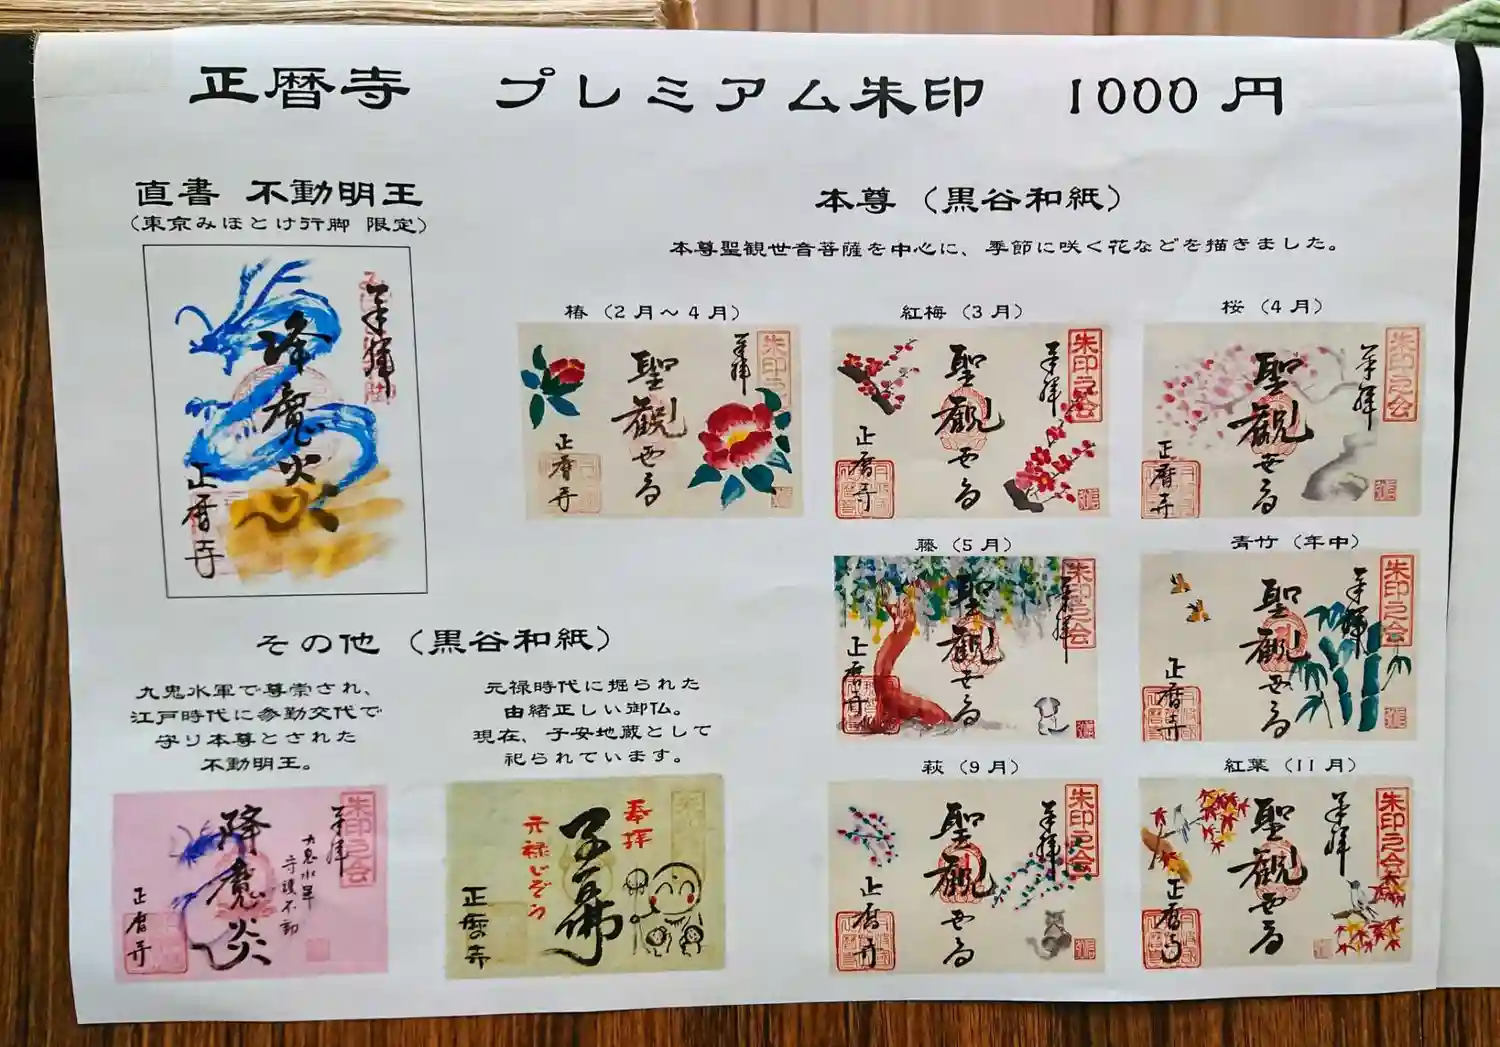 正暦寺　プレミアム朱印　1000 円
直書 不動明王
(東京みほとけ行脚 限定)
降魔炎
奉拝
正暦寺
本尊（黒谷和紙）
本尊聖観世音菩薩を中心に、季節に咲く花などを描きました。
椿（2月～4月）
朱印之会
奉拝
聖観世音
正暦寺
紅梅（3月）
朱印之会
奉拝
聖観世音
正暦寺
桜（4月）
朱印之会
奉拝
聖観世音
正暦寺
藤（5月）
朱印之会
奉拝
聖観世音
正暦寺
青竹（年中）
朱印之会
奉拝
聖観世音
正暦寺
萩（9月）
朱印之会
奉拝
聖観世音
正暦寺
紅葉（11月）
朱印之会
奉拝
聖観世音
正暦寺
その他（黒谷和紙）
九鬼水軍で尊崇され、
江戸時代に参勤交代で
守り本尊とされた
不動明王。
朱印之会
奉拝
九鬼水軍
守護不動
降魔炎
正暦寺
元禄時代に掘られた
由緒正しい御仏。
現在、子安地蔵として
祀られています。
奉拝
元禄じぞう
正暦寺